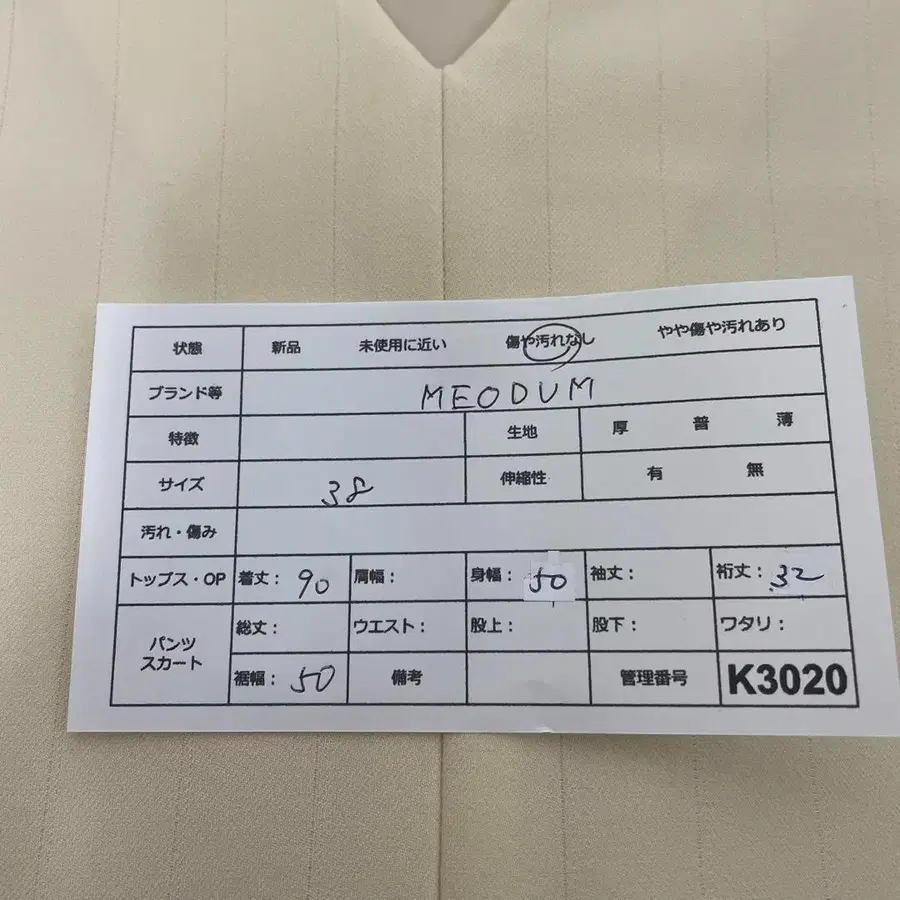 状態 新品 未使用に近い 傷や汚れなし やや傷や汚れあり
ブランド等 MEODUM
特徴 生地 厚 普 薄
サイズ 38 伸縮性 有 無
汚れ・傷み
トップス・OP 着丈: 90 肩幅: 身幅: 50 袖丈: 裄丈: 32
パンツ スカート 総丈: ウエスト: 股上: 股下: ワタリ:
裾幅: 50 備考 管理番号 K3020